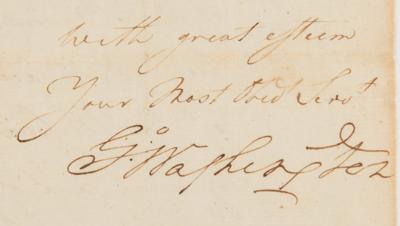 with great esteem
Your Most Obedt Servt
Go: Washington